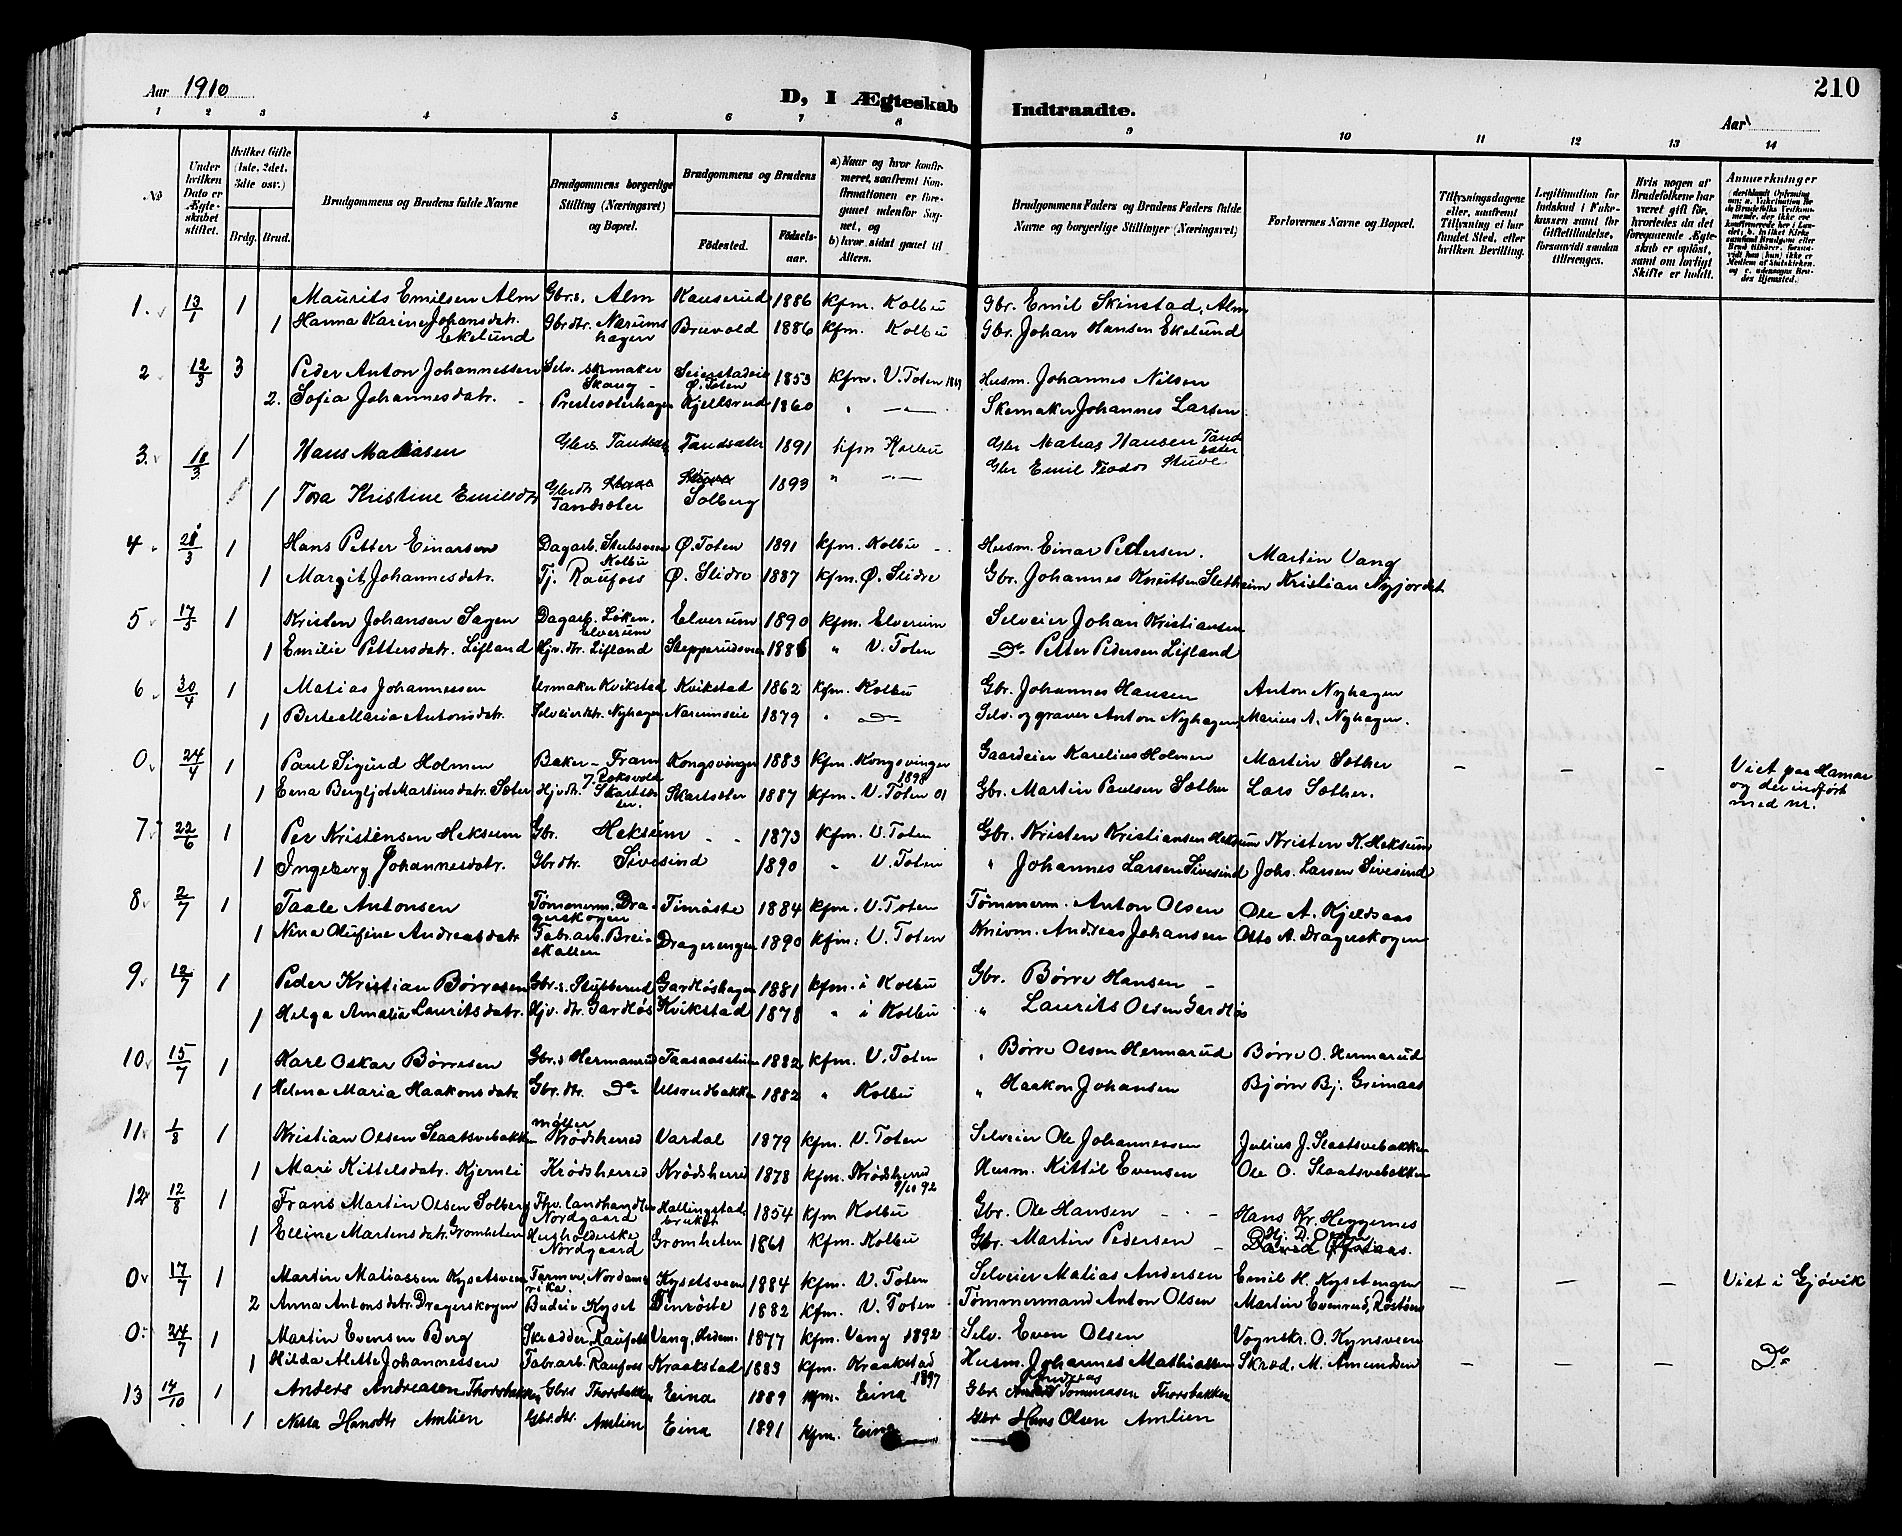 Aar 1910
D, I Ægteskab Indtraadte.
210
Aar
1 2 3 4 5 6 7 8 9 10 11 12 13 14
No
Under hvilken Dato er Ægteskabet stiftet.
Hvilket Gifte (1ste, 2det, 3die osv.)
Brdg. Brud.
Brudgommens og Brudens fulde Navne
Brudgommens borgerlige Stilling (Næringsvei) og Bopæl.
Brudgommens og Brudens
Fødested. Fødselsaar.
a) Naar og hvor konfirmeret, saafremt Konfirmationen er foregaaet udenfor Sognet, og
b) hvor sidst gaaet til Alters.
Brudgommens Faders og Brudens Faders fulde Navne og borgerlige Stillinger (Næringsvei)
Forlovernes Navne og Bopæl.
Tillysningsdagene eller, saafremt Tillysning ei har fundet Sted, efter hvilken Bevilling.
Legitimation for Indskud i Enkekassen samt for Giftetilladelse, forsaavidt saadan tiltrænges.
Hvis nogen af Brudefolkene har været gift før, hvorledes da det foregaaende Ægteskab er opløst, samt om lovligt Skifte er holdt.
Anmærkninger
1. 13/1 1 Maurits Emilsen Alm Gbr.s. Alm Kauserud 1886 kfm. Kolbu Gbr. Emil Skinstad, Alm
1 Hanna Karine Johansdatr. Ekelund Gbrdtr. Nærumshagen Bruvold 1886 kfm. Kolbu Gbr. Johan Hansen Ekelund
2 12/3 3 Peder Anton Johannessen Selv. skomaker Skaug Seierstadeie Ø. Toten 1853 kfm. V. Toten Husm. Johannes Nilsen
2. Sofia Johannesdatr. Prestesæterhagen Kjellsrud 1860 " Skomaker Johannes Larsen
3. 18/3 1 Hans Matiasen Gbrs. Tandsæter Tandsæter 1891 kfm Kolbu Gbr Matias Hansen Tandsæter
1 Tora Kristine Emilsdtr Gbrdtr Stuve Tandsæter Stuve Solberg 1893 " Gbr Emil Teodor Stuve
4 28/3 1 Hans Petter Einarsen Dagarb. Stubsveen Kolbu Ø. Toten 1891 kfm. Kolbu Husm. Einar Pedersen. Martin Vang
1 Margit Johannesdatr. Tj. Raufoss Ø. Slidre 1887 kfm. Ø. Slidre Gbr. Johannes Knutsen Sletheim Kristian Nyjordet
5 17/3 1 Kristen Johansen Sagen Dagarb. Løken Elverum Elverum 1890 kfm. Elverum Selveier Johan Kristiansen
1 Emilie Pettersdatr. Lifland Hjv. dtr. Lifland Stepperudsveen 1886 " V. Toten Do Petter Pedersen Lifland
6 30/4 1 Matias Johannessen Urmaker Kvikstad Kvikstad 1862 kfm. Kolbu Gbr. Johannes Hansen Anton Nyhagen
1 Berte Maria Antonsdatr. Selveierdtr. Nyhagen Narumseie 1879 " Do Selv. og graver Anton Nyhagen, Marius A. Nyhagen.
0 24/4 1 Paul Sigurd Holmen Baker - Fram Kongsvinger 1883 kfm. Kongsvinger 1898 Gaardeier Karelius Holmen Martin Sother — — — Viet paa Hamar og der indført med nr.
1 Eena Bergljot Martinsdatr. Sæter Hjv. dtr. Skartsæter Skartsæter 1887 kfm. V. Toten 01 Gbr. Martin Paulsen Sæther Lars Sæther.
7 22/6 1 Per Kristensen Heksum Gbr. Heksum 1873 kfm. V. Toten Gbr. Kristen Kristiansen Heksum Kristen K. Heksum
1 Ingeborg Johannesdatr. Gbrdtr. Sivesind 1890 " V. Toten " Johannes Larsen Sivesind Johs. Larsen Sivesind
8 2/7 1 Taale Antonsen Tømmerm. Dragerskogen Timøste 1884 kfm. V. Toten Tømmerm. Anton Olsen Ole A. Kjeldsaas
1 Nina Olufine Andreasdatr. Fabr.arb. Breiskallen Dragerengen 1890 kfm. V. Toten Knivm. Andreas Johansen Otto A. Dragerskogen
9 12/7 1 Peder Kristian Børresen Gbr.s. Stubberud Gardløshagen 1881 kfm. i Kolbu Gbr. Børre Hansen
1 Helga Amalia Lauritsdatr. Hjv. dtr. Gardløs Kvikstad 1878 " i Kolbu " Laurits Olsen Gardløs
10 15/7 1 Karl Oskar Børresen Gbr.s. Hermanrud Taasaasstuen 1882 kfm. V. Toten " Børre Olsen Hermarud Børre O. Hermarud
1 Helena Maria Haakonsdatr. Gbr. dtr. Do Ulsrudbakken 1882 " Kolbu " Haakon Johansen Bjørn Bj. Grimaas
11 1/8 1 Kristian Olsen Slaatsvebakken møller Krødsherred Vardal 1879 kfm. V. Toten Selveier Ole Johannessen Julius J. Slaatsvebakken
1 Mari Kittelsdatr. Kjernli Krødsherred Krødsherred 1878 kfm. Krødsherred 9/10 92 Husm. Kittil Evensen Ole O. Slaatsvebakken
12 12/8 1 Frans Martin Olsen Solberg Fhv. landhandler Nordgaard Hallingstadbruket 1854 kfm Kolbu Gbr. Ole Hansen Hans Kr. Heggernes
1 Elline Martensdatr. Gromheten Husholderske Nordgaard Gromheten 1861 kfm. Kolbu Gbr. Martin Pedersen
0 17/7 1 Martin Matiassen Kysetsveen Farmer, Nordamerika. Kysetsveen 1884 kfm. V. Toten Selveier Matias Andersen Emil H. Kysetengen — — — Viet i Gjøvik
2 Anna Antonsdatr. Dragerskogen Budeie Kyset Timrøste 1882 kfm. V. Toten Tømmermand Anton Olsen Martin Evenrud,
0 24/7 1 Martin Evensen Berg Skrædder, Raufoss Vang, Hedem. 1877 kfm. Vang 1892 Selv. Even Olsen Vognstr. O. Kynsveen
1 Hilda Alette Johannessen Fabr.arb. Raufoss Kraakstad 1883 kfm. Kraakstad 1897 Husm. Johannes Mathiassen Skræd. M. Amundsen — — — Do
13 14/10 1 Anders Andreasen Thorsbakken Gbrs Thorsbakken Eina 1889 kfm. Eina Gbr Andreas Tommasen Thorsbakken
1 Netta Hansdtr Amlien Gbr.dtr. Amlien Eina 1891 kfm. Eina Gbr Hans Olsen Amlien